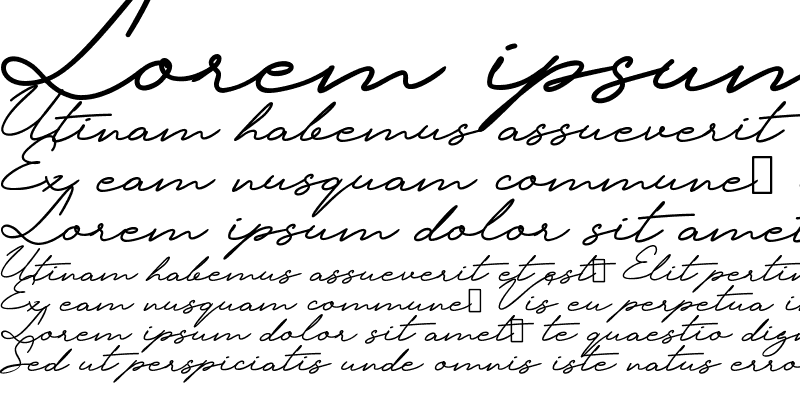 Lorem ipsum
Utinam habemus assueverit
Ex eam nusquam commune
Lorem ipsum dolor sit amet
Utinam habemus assueverit et est Elit pertin
Ex eam nusquam commune Vis eu perpetua i
Lorem ipsum dolor sit amet te quaestio dign
Sed ut perspiciatis unde omnis iste natus erro